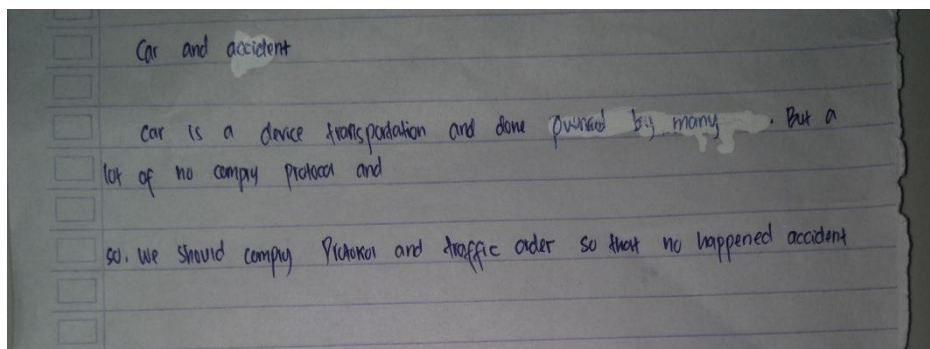 Car and accident
car is a device transportation and done owned by many. But a
lot of no comply protocol and
so. we should comply Protokol and traffic order so that no happened accident